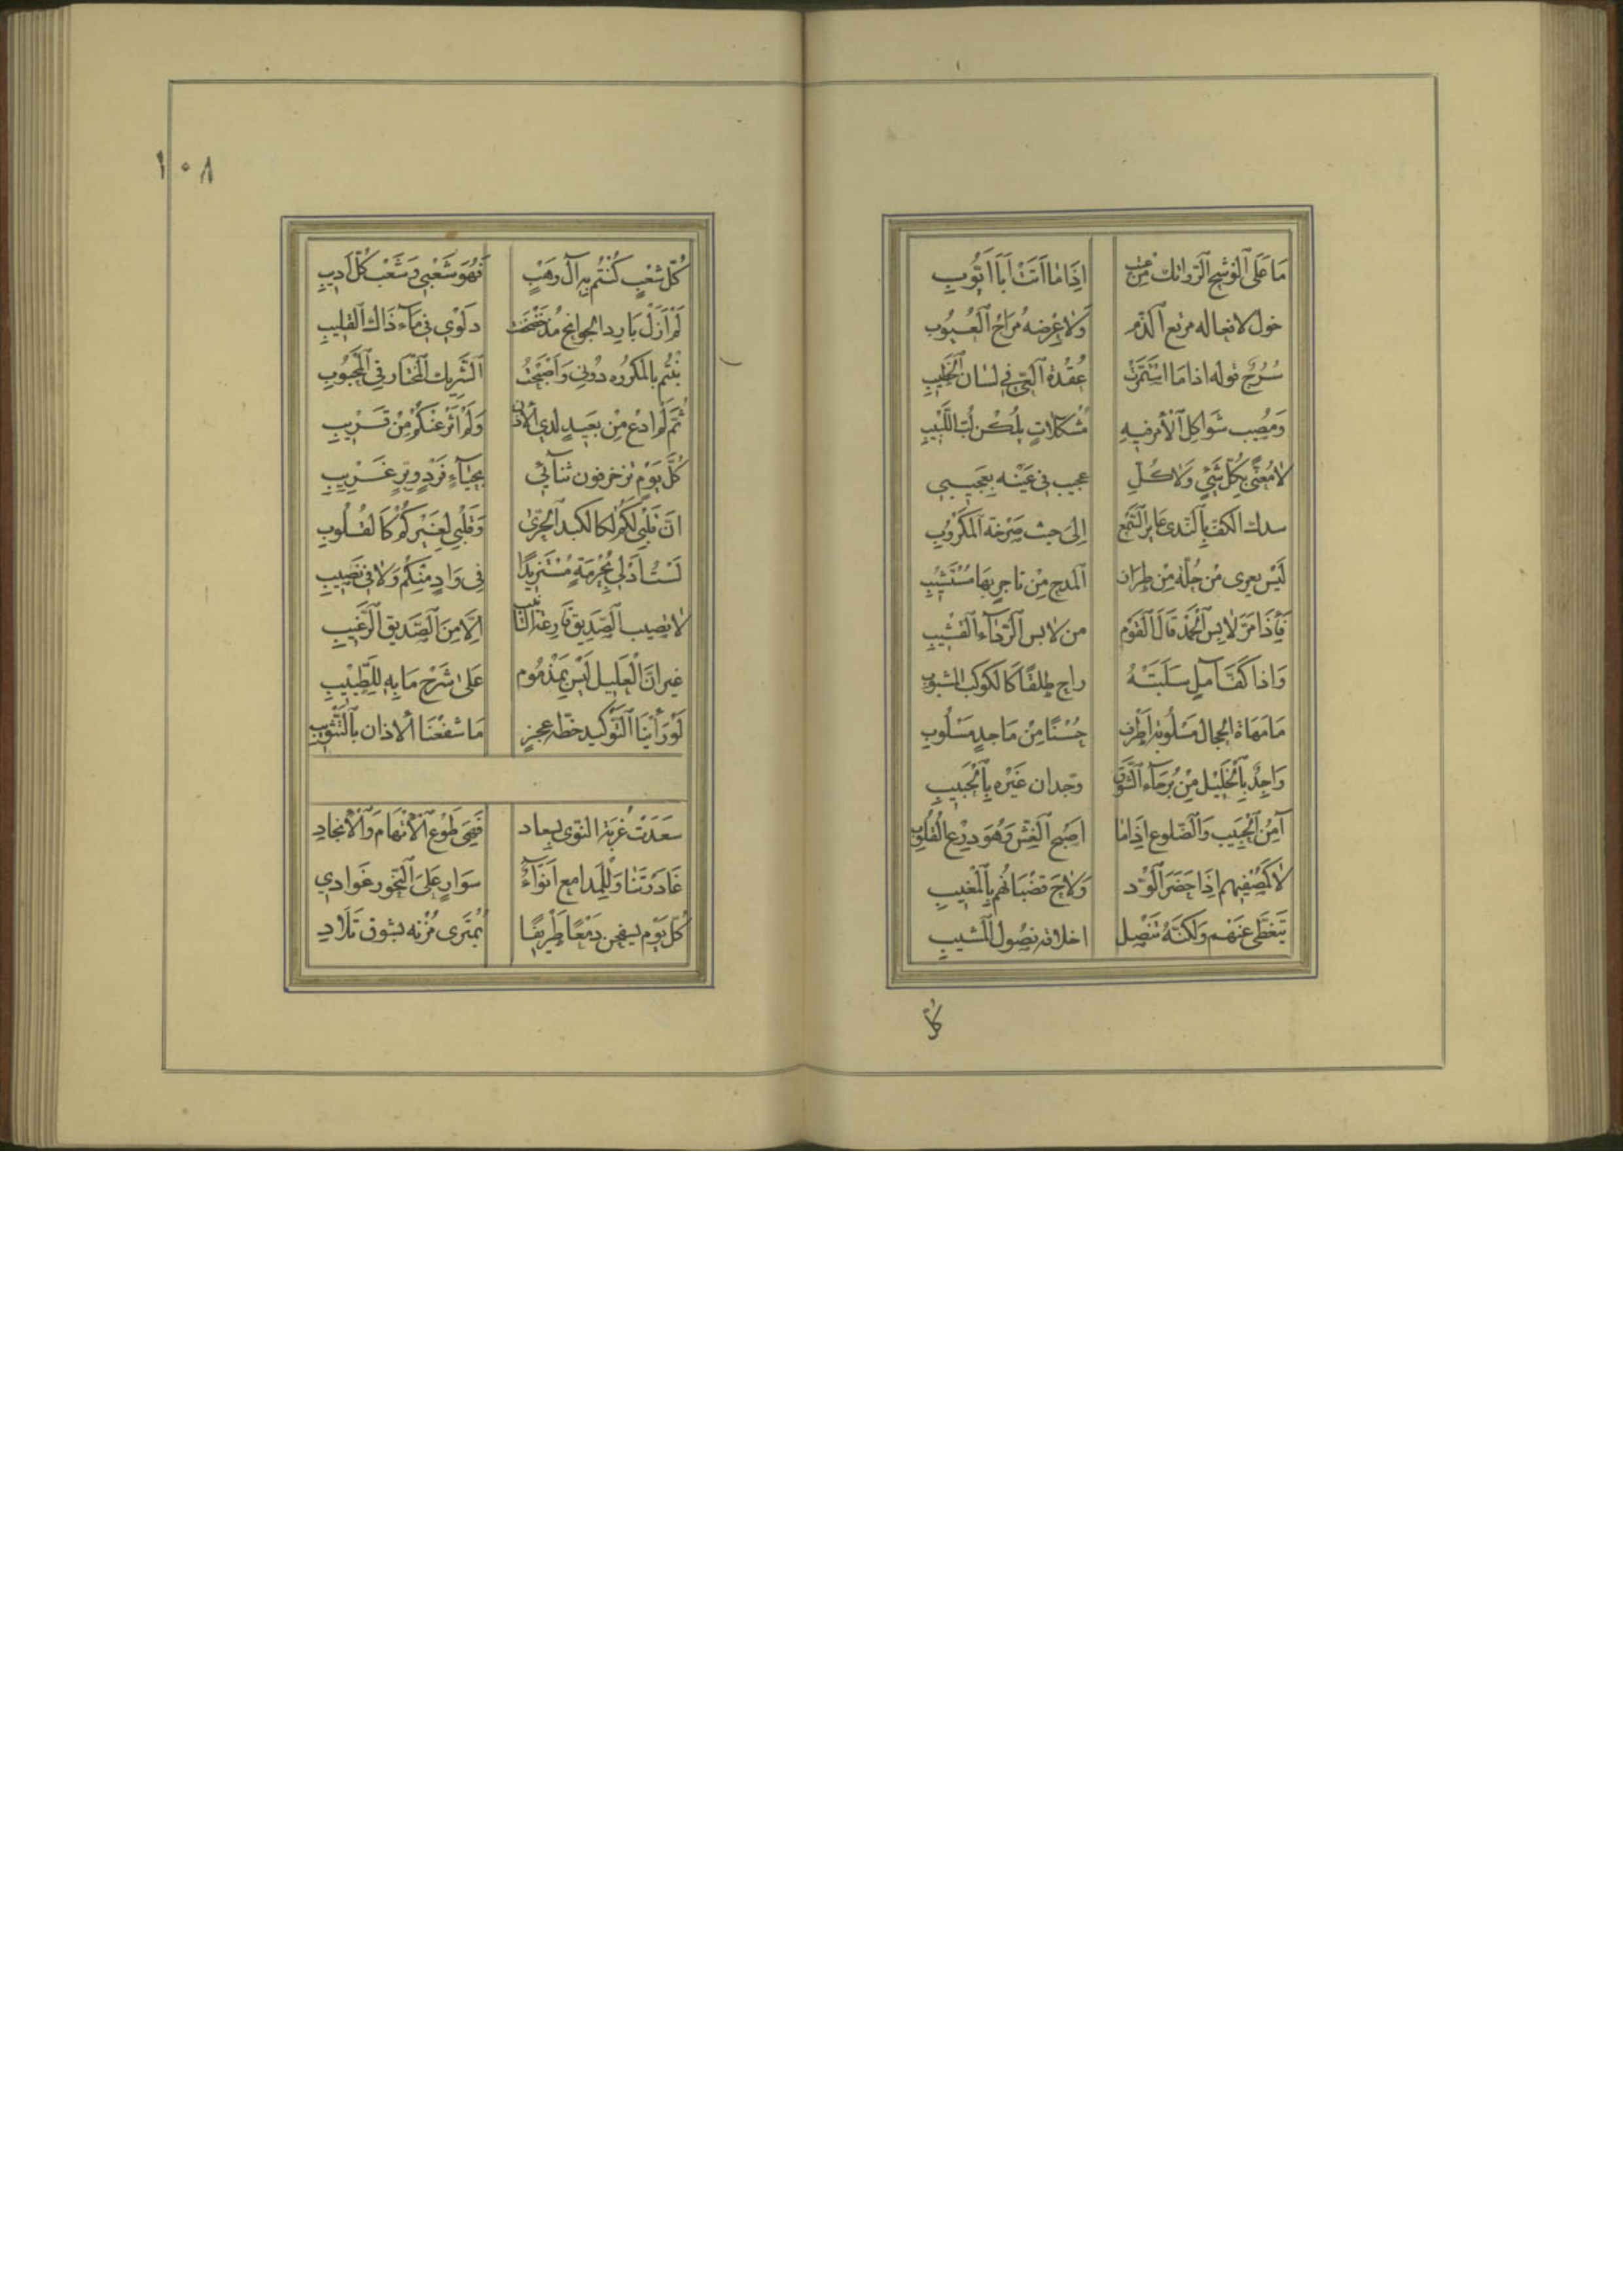 مَا عَلَى الْوُسَّجِ الرَّوَاتِكِ مِنْ عَتْبٍ اِذَا مَا اَتَتْ اَبَا اَيُّوبِ
حول لا فعاله مرتع الذم وَلَا عِرْضُهُ مَرَاحُ الْعُيُوبِ
سُرُحٌ قوله اذا مَا اسْتَمَرَّتْ عُقْدَةُ الْعِيِّ فِي لِسَانِ الْخَطِيبِ
وَمُصِيب شَوَاكِلَ الْاَمْرِ فِيهِ مُشْكِلَاتٍ يُلْكِنَّ لُبَّ اللَّبِيبِ
لَا مُعَنًّى بِكُلِّ شَيْءٍ وَلَا كُلُّ عجيب فى عَيْنِهِ بِعَجِيبِ
سدك الكفّ بِالنَّدى عَاير السَّمْع اِلَى حيث صَرْخَة الْمَكْرُوبِ
لَيْسَ يعرى مِنْ حُلَّةٍ مِنْ طِرَازِ الْمَدح مِنْ تاجرٍ بِهَا مُسْتَثِيبِ
فَاِذَا مَرَّ لَابِسُ الْحَمْدِ قَالَ الْقَوْم من لابس الرِّدَاءِ الْقَشِيبِ
وَاذا كَفُّ آمِلٍ سَلَبَتْهُ راح طلقًا كَالكوكب المشبوب
مَا مَهَاةُ الحجال مَسْلُوبَة اَظْرَف حُسْنًا مِنْ مَاجدٍ مَسْلُوبِ
وَاجِدٌ بِالْخَلِيل مِنْ بُرَحَاءِ الشَّوْق وجدان غَيْرِهِ بِالْحَبِيبِ
آمِنُ الْجَيْبِ وَالضُّلوع اِذَا مَا اَصْبَحَ الْغِشّ وَهُوَ دِرْع الْقُلُوبِ
لَا كَمُصْفِيهِم اِذَا حَضَرَ الْوُدّ وَلَاحَ قُضْبَانُهُم بِالْمَغِيبِ
يَتَغَطَّى عَنْهُم وَلَكِنَّهُ تَنْصُل اخلاقه نصُول الْمَشيبِ
كلّ
١٠٨
كُلّ شعْبٍ كُنْتُم بِهِ آلَ وَهْبٍ فَهُوَ شَعْبِي وَشَعْبُ كُلّ اَدِيبِ
لَمْ اَزَلْ بَارِد الجوانح مُذ خَضْخَضْت دَلْوِي فِي مَاءِ ذَاكَ الْقَلِيبِ
بِنْتُم بِالمكروه دُونِي وَاَصْبَحْتُ الشَّرِيكَ الْمُخْتَار فِي الْمَحْبُوبِ
ثُمَّ لَمْ ادْعَ مِنْ بَعِيدٍ لَدَى الْاِذْنِ وَلَمْ اُثْنَ عَنْكُمْ مِنْ قَرِيبِ
كُلَّ يَوْمٍ تزخرفون ثنائي بِحِبَاءٍ فَرْدٍ وَبِرٍّ غَرِيبِ
اِنّ قَلْبِي لَكُمْ لكالكبد الحَرَّى وَقَلْبِي لِغَيْرِكُمْ كَالقُلُوبِ
لَسْتُ اُدْلِي بِحُرْمَةٍ مُسْتَزِيدًا فِي وَادٍ مِنْكُمْ وَلَا فِي نَصِيبِ
لَا يصيب الصَّدِيق قَارِعَة التأنيب اِلَّا مِنَ الصَّدِيقِ الرَّغِيبِ
غير انّ الْعَلِيل لَيْسَ بِمَذْمُوم عَلَى شَرْحِ مَا بِهِ لِلطَّبِيبِ
لَوْ رَأَيْنَا التَّوْكِيد خُطَّة عجزٍ مَا شَفَعْنَا الْاَذان بِالتَّثْوِيبِ
سَعِدَتْ غُرْبَة النّوى بِسعاد فَهِيَ طَوْع الْاِتْهَام وَالْاِنْجَادِ
غَادَرَتْنَا وَلِلْمَدامع اَنْوَاءٌ سَوَارٍ عَلَى النُّحُور غَوَادِي
كُلّ يَوْم يسفحن دَمْعًا طَرِيفًا يُمْتَرَى مُزْنه بشوق تِلَادِ